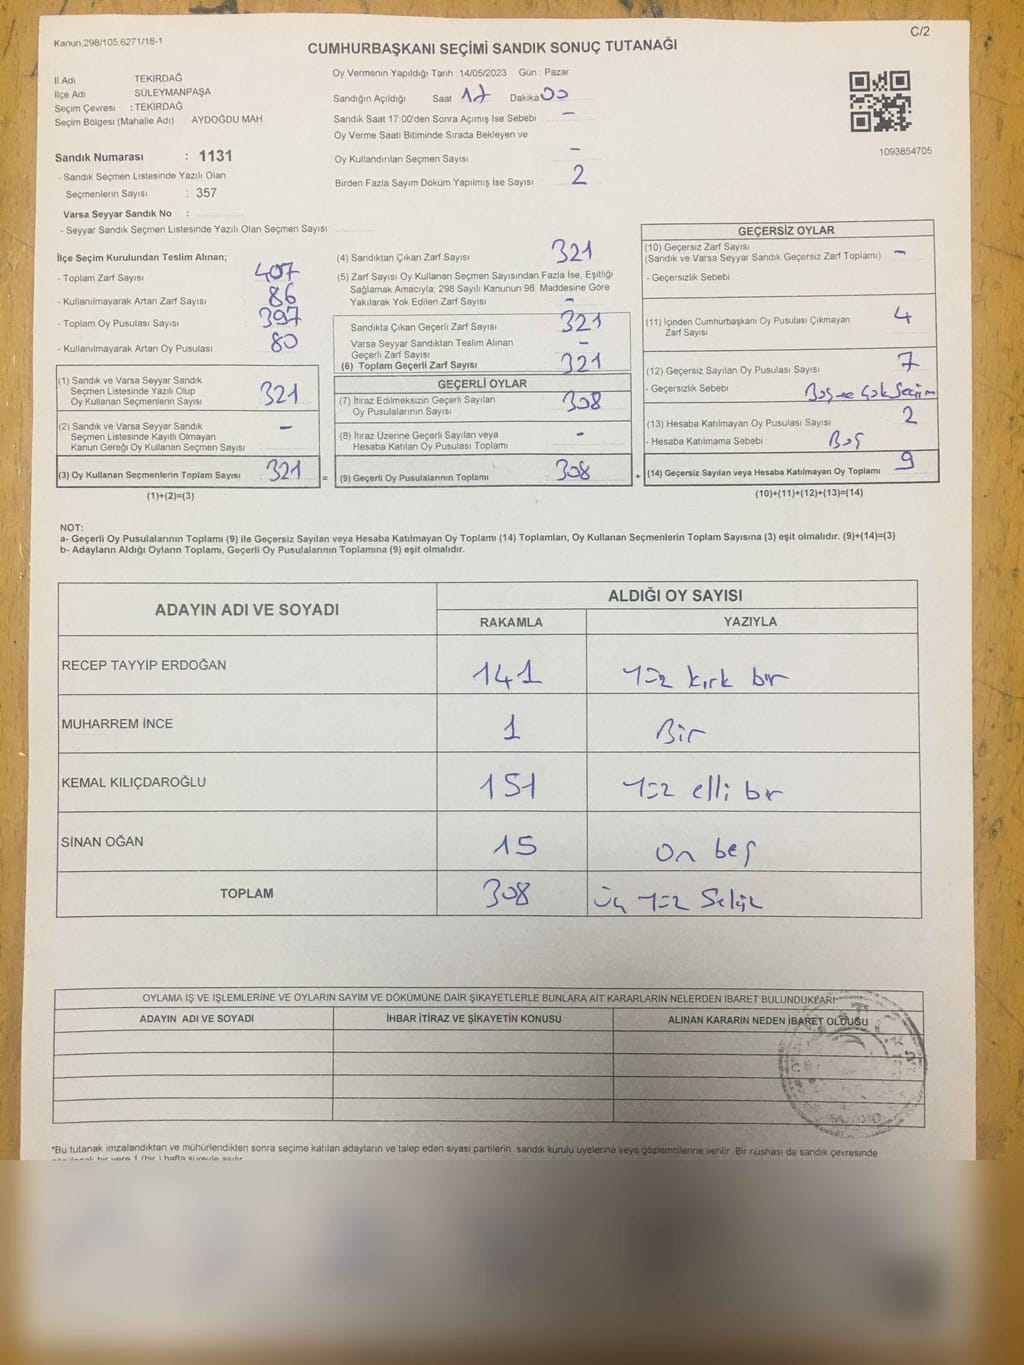 Kanun.298/105.6271/18-1
C/2
CUMHURBAŞKANI SEÇİMİ SANDIK SONUÇ TUTANAĞI
İl Adı TEKİRDAĞ
İlçe Adı : SÜLEYMANPAŞA
Seçim Çevresi : TEKİRDAĞ
Seçim Bölgesi (Mahalle Adı) : AYDOĞDU MAH.
Sandık Numarası : 1131
- Sandık Seçmen Listesinde Yazılı Olan
Seçmenlerin Sayısı : 357
Varsa Seyyar Sandık No :
- Seyyar Sandık Seçmen Listesinde Yazılı Olan Seçmen Sayısı
Oy Vermenin Yapıldığı Tarih :14/05/2023 Gün : Pazar
Sandığın Açıldığı Saat 17 Dakika 00
Sandık Saat 17 00'den Sonra Açımış İse Sebebi -
Oy Verme Saati Bitiminde Sırada Bekleyen ve
Oy Kullandırılan Seçmen Sayısı -
Birden Fazla Sayım Döküm Yapılmış İse Sayısı 2
1093854705
İlçe Seçim Kurulundan Teslim Alınan;
- Toplam Zarf Sayısı 407
- Kullanılmayarak Artan Zarf Sayısı 86
- Toplam Oy Pusulası Sayısı 397
- Kullanılmayarak Artan Oy Pusulası 80
(1) Sandık ve Varsa Seyyar Sandık
Seçmen Listesinde Yazılı Olup
Oy Kullanan Seçmenlerin Sayısı 321
(2) Sandık ve Varsa Seyyar Sandık
Seçmen Listesinde Kayıtlı Olmayan
Kanun Gereği Oy Kullanan Seçmen Sayısı -
(3) Oy Kullanan Seçmenlerin Toplam Sayısı 321 =
(1)+(2)=(3)
(4) Sandıktan Çıkan Zarf Sayısı 321
(5) Zarf Sayısı Oy Kullanan Seçmen Sayısından Fazla İse, Eşitliği
Sağlamak Amacıyla, 298 Sayılı Kanunun 98. Maddesine Göre
Yakılarak Yok Edilen Zarf Sayısı -
Sandıkta Çıkan Geçerli Zarf Sayısı 321
Varsa Seyyar Sandıktan Teslim Alınan
Geçerli Zarf Sayısı -
(6) Toplam Geçerli Zarf Sayısı 321
GEÇERLİ OYLAR
(7) İtiraz Edilmeksizin Geçerli Sayılan
Oy Pusulalarının Sayısı 308
(8) İtiraz Üzerine Geçerli Sayılan veya
Hesaba Katılan Oy Pusulası Toplamı -
(9) Geçerli Oy Pusulalarının Toplamı 308 +
GEÇERSİZ OYLAR
(10) Geçersiz Zarf Sayısı
(Sandık ve Varsa Seyyar Sandık Geçersiz Zarf Toplamı) -
- Geçersizlik Sebebi
(11) İçinden Cumhurbaşkanı Oy Pusulası Çıkmayan
Zarf Sayısı 4
(12) Geçersiz Sayılan Oy Pusulası Sayısı 7
- Geçersizlik Sebebi Boş ve Çok Seçim
(13) Hesaba Katılmayan Oy Pusulası Sayısı 2
- Hesaba Katılmama Sebebi Boş
(14) Geçersiz Sayılan veya Hesaba Katılmayan Oy Toplamı 9
(10)+(11)+(12)+(13)=(14)
NOT:
a- Geçerli Oy Pusulalarının Toplamı (9) ile Geçersiz Sayılan veya Hesaba Katılmayan Oy Toplamı (14) Toplamları, Oy Kullanan Seçmenlerin Toplam Sayısına (3) eşit olmalıdır. (9)+(14)=(3)
b- Adayların Aldığı Oyların Toplamı, Geçerli Oy Pusulalarının Toplamına (9) eşit olmalıdır.
ADAYIN ADI VE SOYADI
ALDIĞI OY SAYISI
RAKAMLA YAZIYLA
RECEP TAYYİP ERDOĞAN 141 Yüz kırk bir
MUHARREM İNCE 1 Bir
KEMAL KILIÇDAROĞLU 151 Yüz elli bir
SİNAN OĞAN 15 On beş
TOPLAM 308 Üç Yüz Sekiz
OYLAMA İŞ VE İŞLEMLERİNE VE OYLARIN SAYIM VE DÖKÜMÜNE DAİR ŞİKAYETLERLE BUNLARA AİT KARARLARIN NELERDEN İBARET BULUNDUKLARI
ADAYIN ADI VE SOYADI İHBAR İTİRAZ VE ŞİKAYETİN KONUSU ALINAN KARARIN NEDEN İBARET OLDUĞU
*Bu tutanak imzalandıktan ve mühürlendikten sonra seçime katılan adayların ve talep eden siyasi partilerin sandık kurulu üyelerine veya gözlemcilerine verilir. Bir nüshası da sandık çevresinde